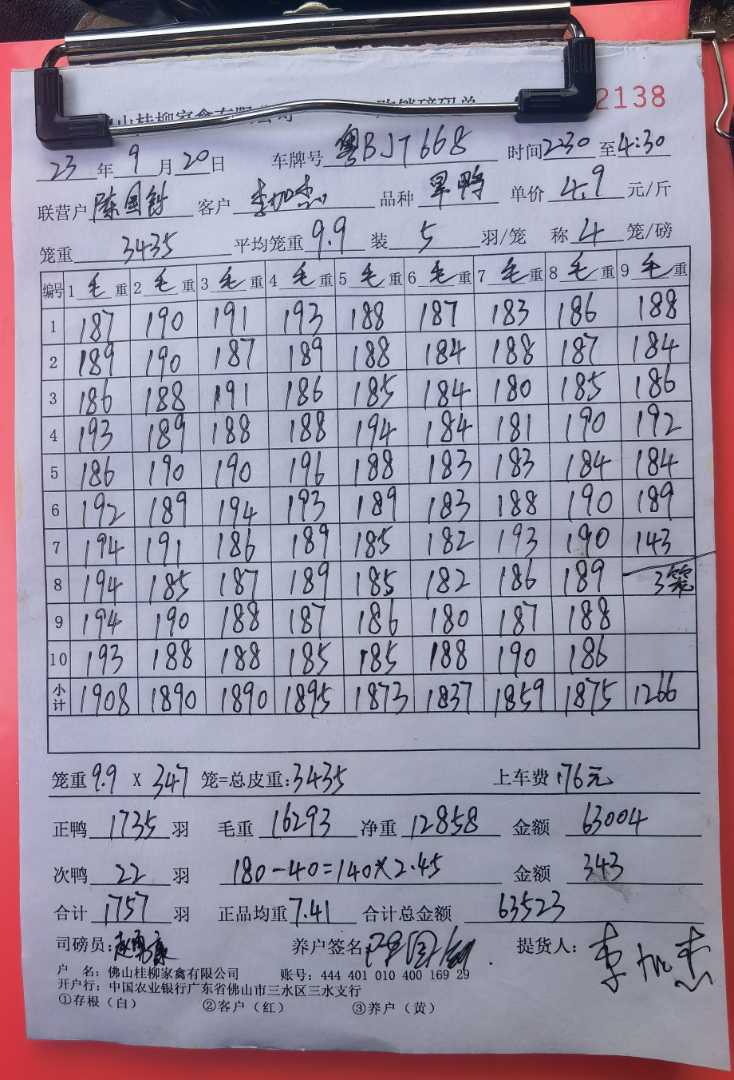 佛山桂柳家禽有限公司 购销磅码单 2138
23年9月20日 车牌号 粤BJ7668 时间2:30至4:30
联营户 陈国 客户 李加杰 品种 旱鸭 单价 4.9 元/斤
笼重 3435 平均笼重 9.9 装 5 羽/笼 称 4 笼/磅
编号 1毛重 2毛重 3毛重 4毛重 5毛重 6毛重 7毛重 8毛重 9毛重
1 187 190 191 193 188 187 183 186 188
2 189 190 187 189 188 184 188 187 184
3 186 188 191 186 185 184 180 185 186
4 193 189 188 188 194 184 181 190 192
5 186 190 190 196 188 183 183 184 184
6 192 189 194 193 189 183 188 190 189
7 194 191 186 189 185 182 193 190 143
8 194 185 187 189 185 182 186 189 3笼
9 194 190 188 187 186 180 187 188
10 193 188 188 185 185 188 190 186
小计 1908 1890 1890 1895 1873 1837 1859 1875 1266
笼重 9.9 X 347 笼=总皮重:3435 上车费 176元
正鸭 1735 羽 毛重 16293 净重 12858 金额 63004
次鸭 22 羽 180-40=140×2.45 金额 343
合计 1757 羽 正品均重 7.41 合计总金额 63523
司磅员: 养户签名 提货人: 李加杰
户 名: 佛山桂柳家禽有限公司 账号: 444 401 010 400 169 29
开户行: 中国农业银行广东省佛山市三水区三水支行
①存根(白) ②客户(红) ③养户(黄)